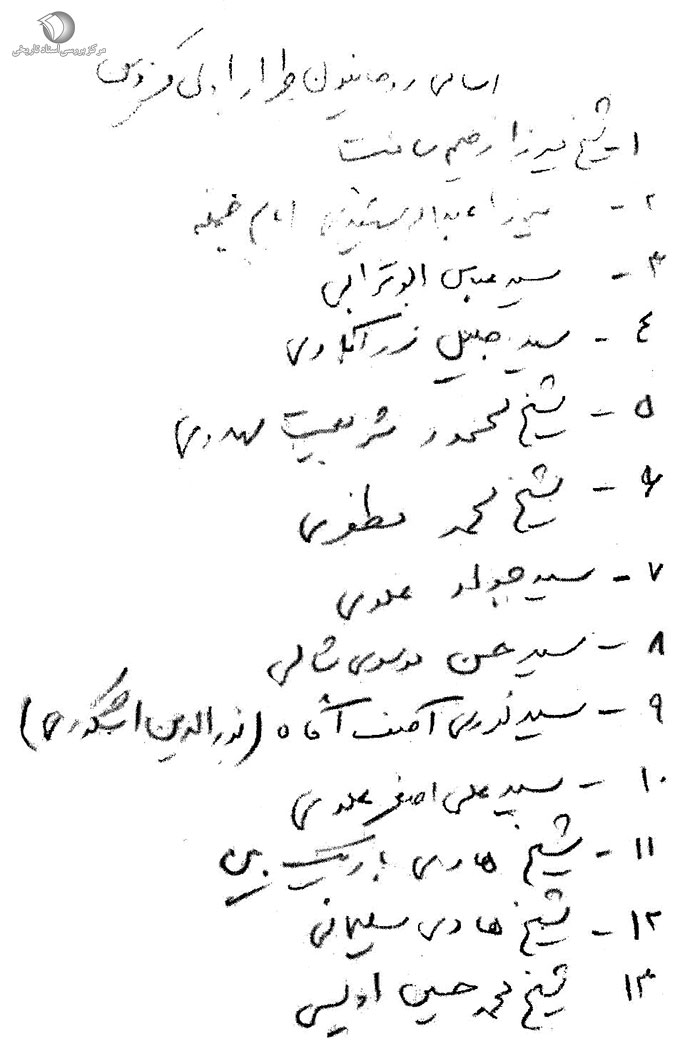 مرکز بررسی اسناد تاریخی
اسامی روحانیون طراز اول قزوین
۱- شیخ میرزا رحیم سامت
۲- میرزا امام جمعه
۳- سید عباس ابوترابی
٤- سید جلیل زرآبادی
۵- شیخ محمود شریعت مهدوی
۶- شیخ محمد مظفری
۷- سید جواد علوی
۸- سید حسن موسوی شالی
۹- سید نوری آصف آگاه (نورالدین اشکوری)
۱۰- سید علی اصغر علوی
۱۱- شیخ هادی باریک بین
۱۲- شیخ هادی سلیمانی
۱۳ شیخ محمد حسین اویسی